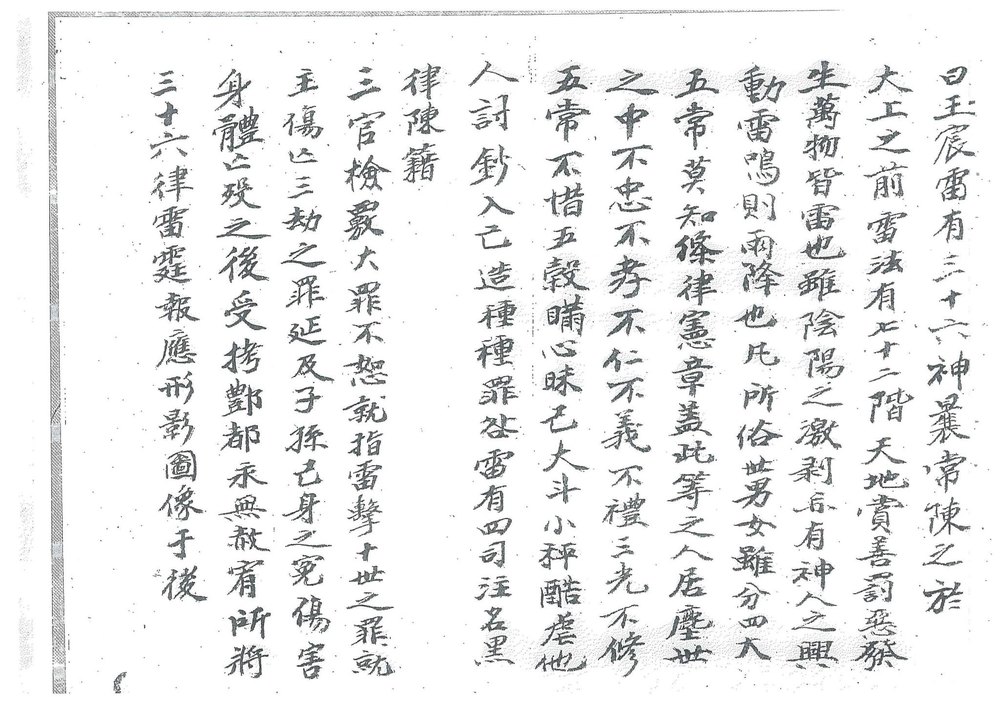 曰玉宸雷有三十六神曩常陳之於
大上之前雷法有七十二階天地賞善罰惡發
生萬物皆雷也雖陰陽之激剥亦有神人之興
動雷鳴則雨降也凡所俗世男女雖分四大
五常莫知條律憲章盖此等之人居塵世
之中不忠不孝不仁不義不禮三光不修
五常不惜五穀瞞心昧己大斗小秤酷虐他
人討鈔入己造種種罪愆雷有四司注名黑
律陳籍
三官檢覈大罪不恕就指雷擊十世之罪就
主傷亡三劫之罪延及子孫己身之冤傷害
身體亡殁之後受拷酆都永無赦宥所將
三十六律雷霆報應形影圖像于後